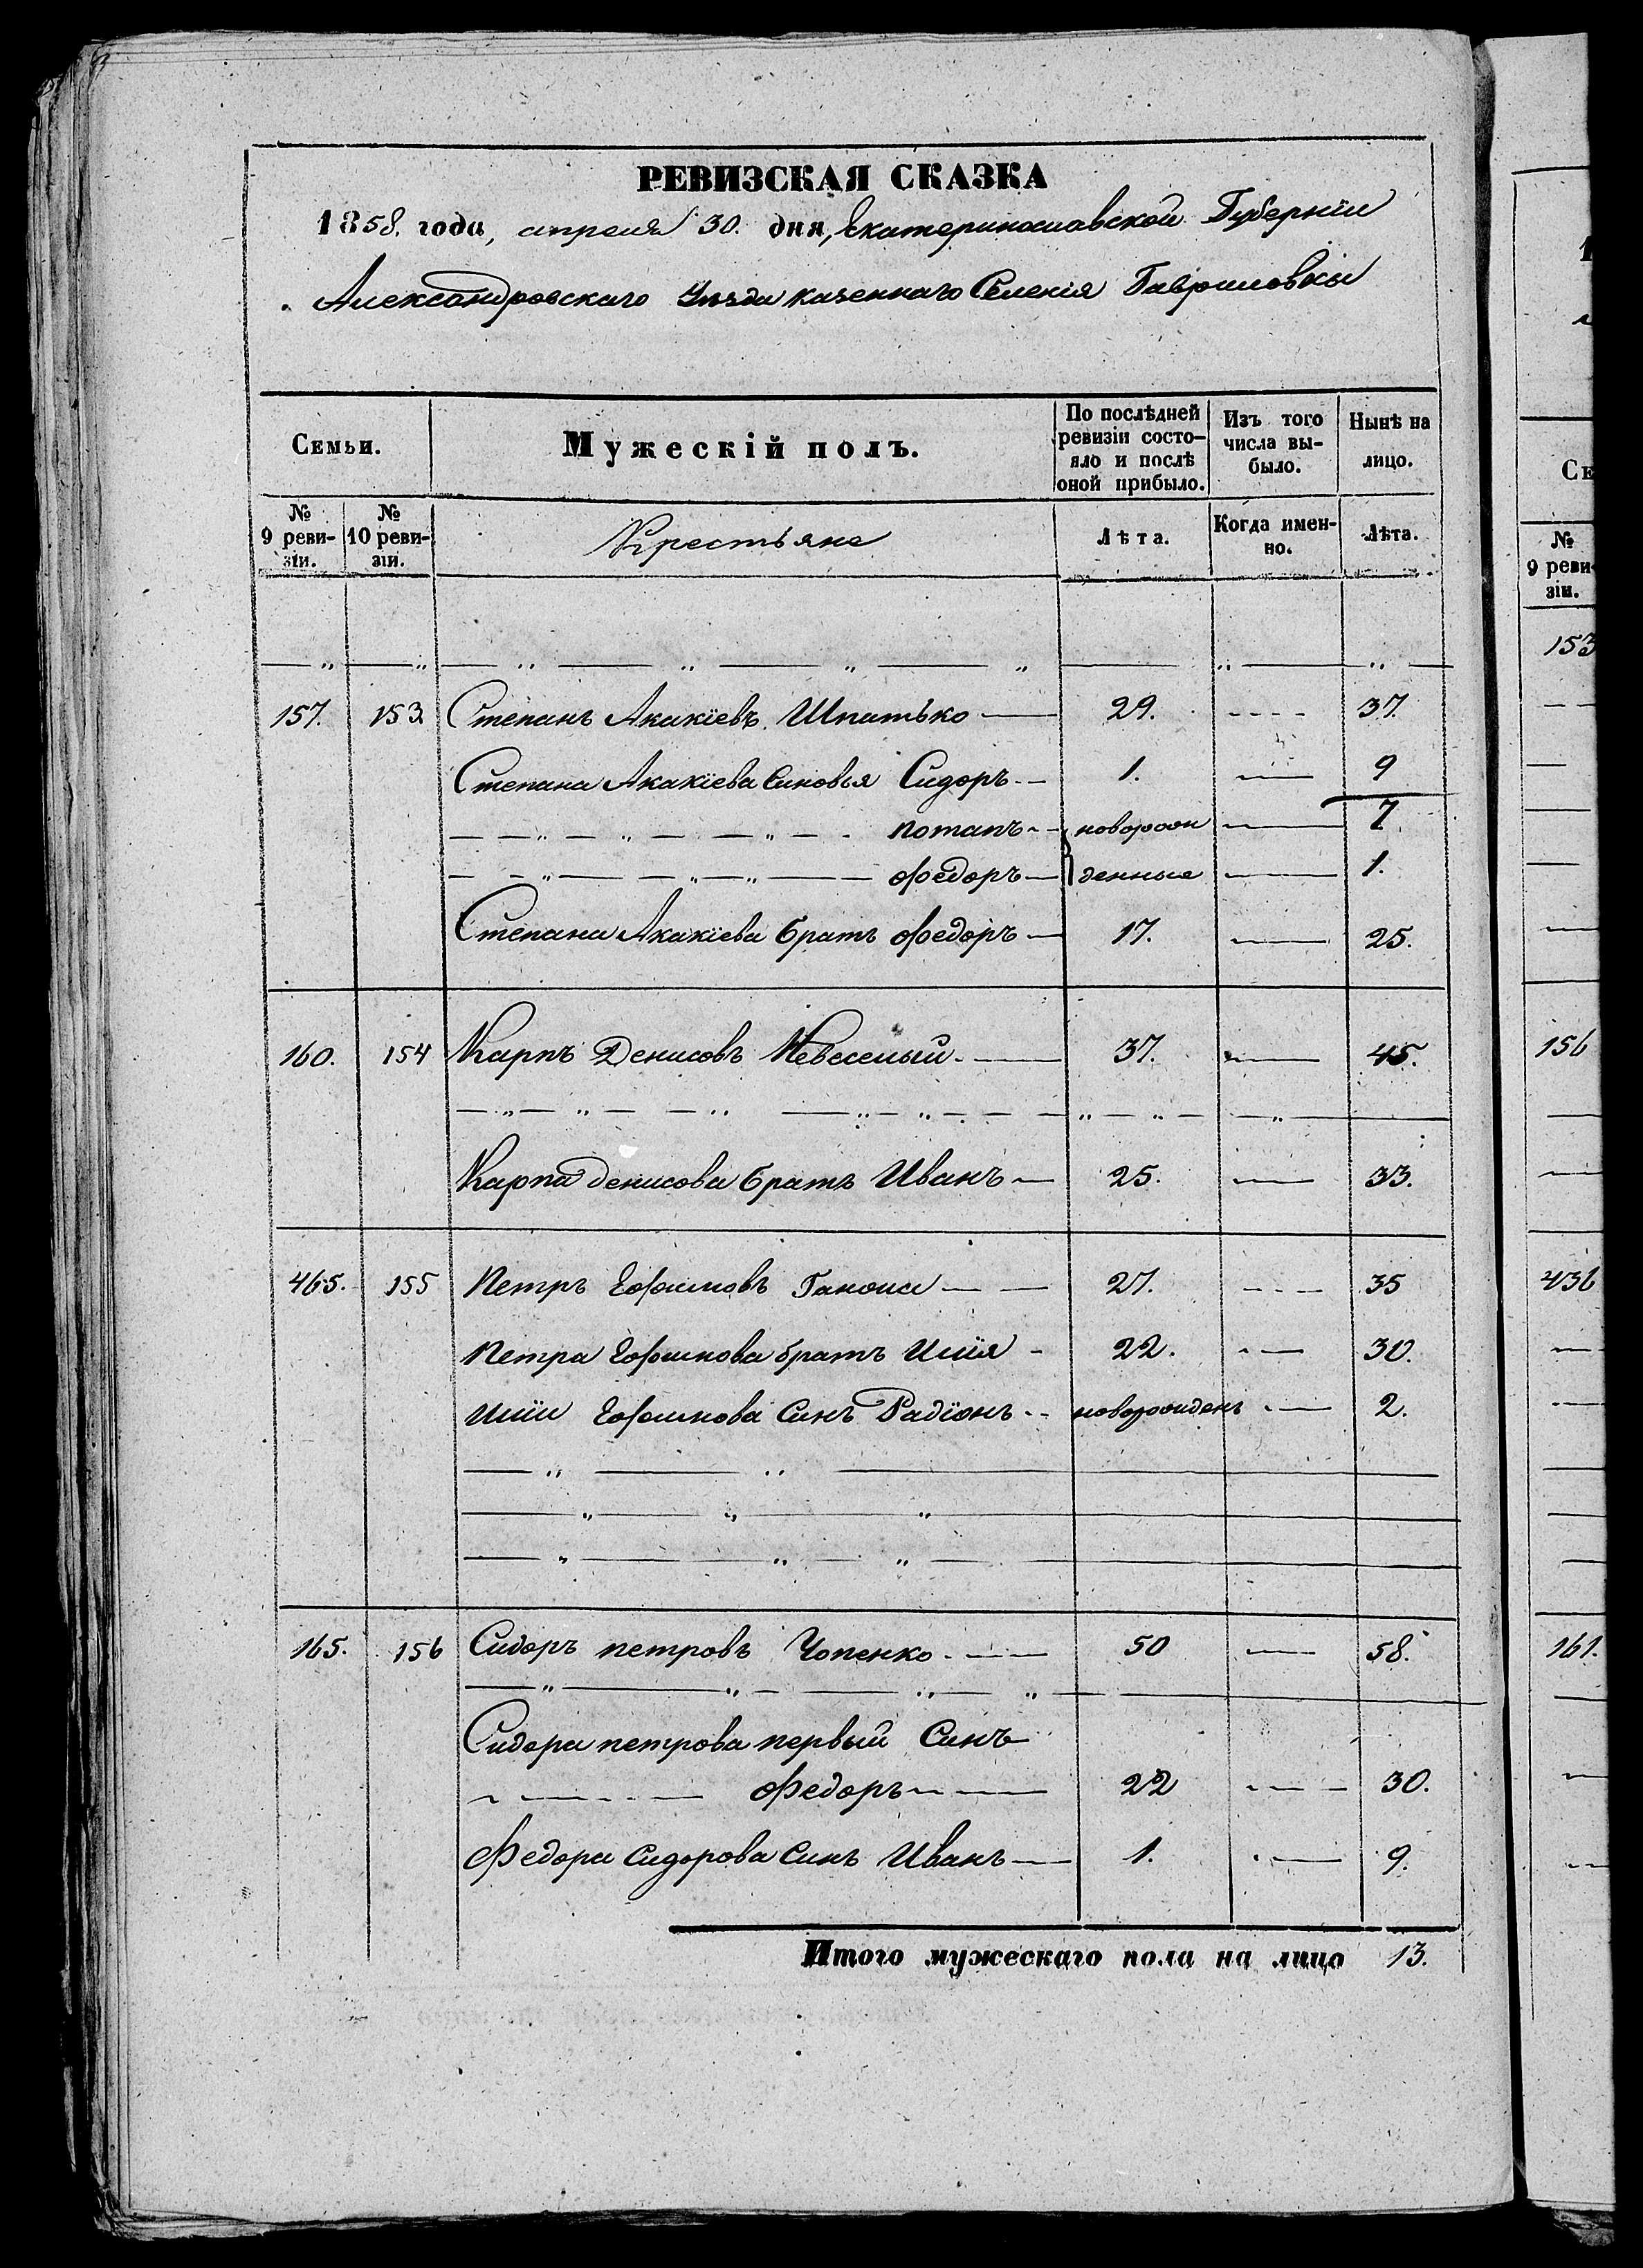 РЕВИЗСКАЯ СКАЗКА
1858. года, апреля 30. дня, Екатеринославской Губерніи
Александровскаго Уезда казеннаго Селенія Гавриловки
Семьи.
Мужескій полъ.
По послѣдней ревизіи состо-яло и послѣ оной прибыло.
Изъ того числа вы-было.
Нынѣ на лицо.
№ 9 реви-зіи.
№ 10 реви-зіи.
Крестьяне
Лѣта.
Когда имен-но.
Лѣта.
157. 153 Степанъ Акакіевъ Шпатько 29. 37.
Степана Акакіева Синовья Сидоръ 1. 9
Потапъ новорожд 7
Федоръ денные 1.
Степана Акакіева братъ Федоръ 17. 25.
160. 154 Карпъ Денисовъ Невеселый 37. 45.
Карпа Денисова братъ Иванъ 25. 33.
465. 155 Петръ Ефимовъ 27. 35
Петра Ефимова братъ Илія 22. 30.
Иліи Ефимова Синъ Радіонъ новорожденъ 2.
165. 156 Сидоръ петровъ Чопенко 50 58.
Сидора петрова первый Синъ
Федоръ 22 30.
Федора Сидорова Синъ Иванъ 1. 9.
Итого мужескаго пола на лицо 13.
№
9 реви
зіи.
153
156
436
161.